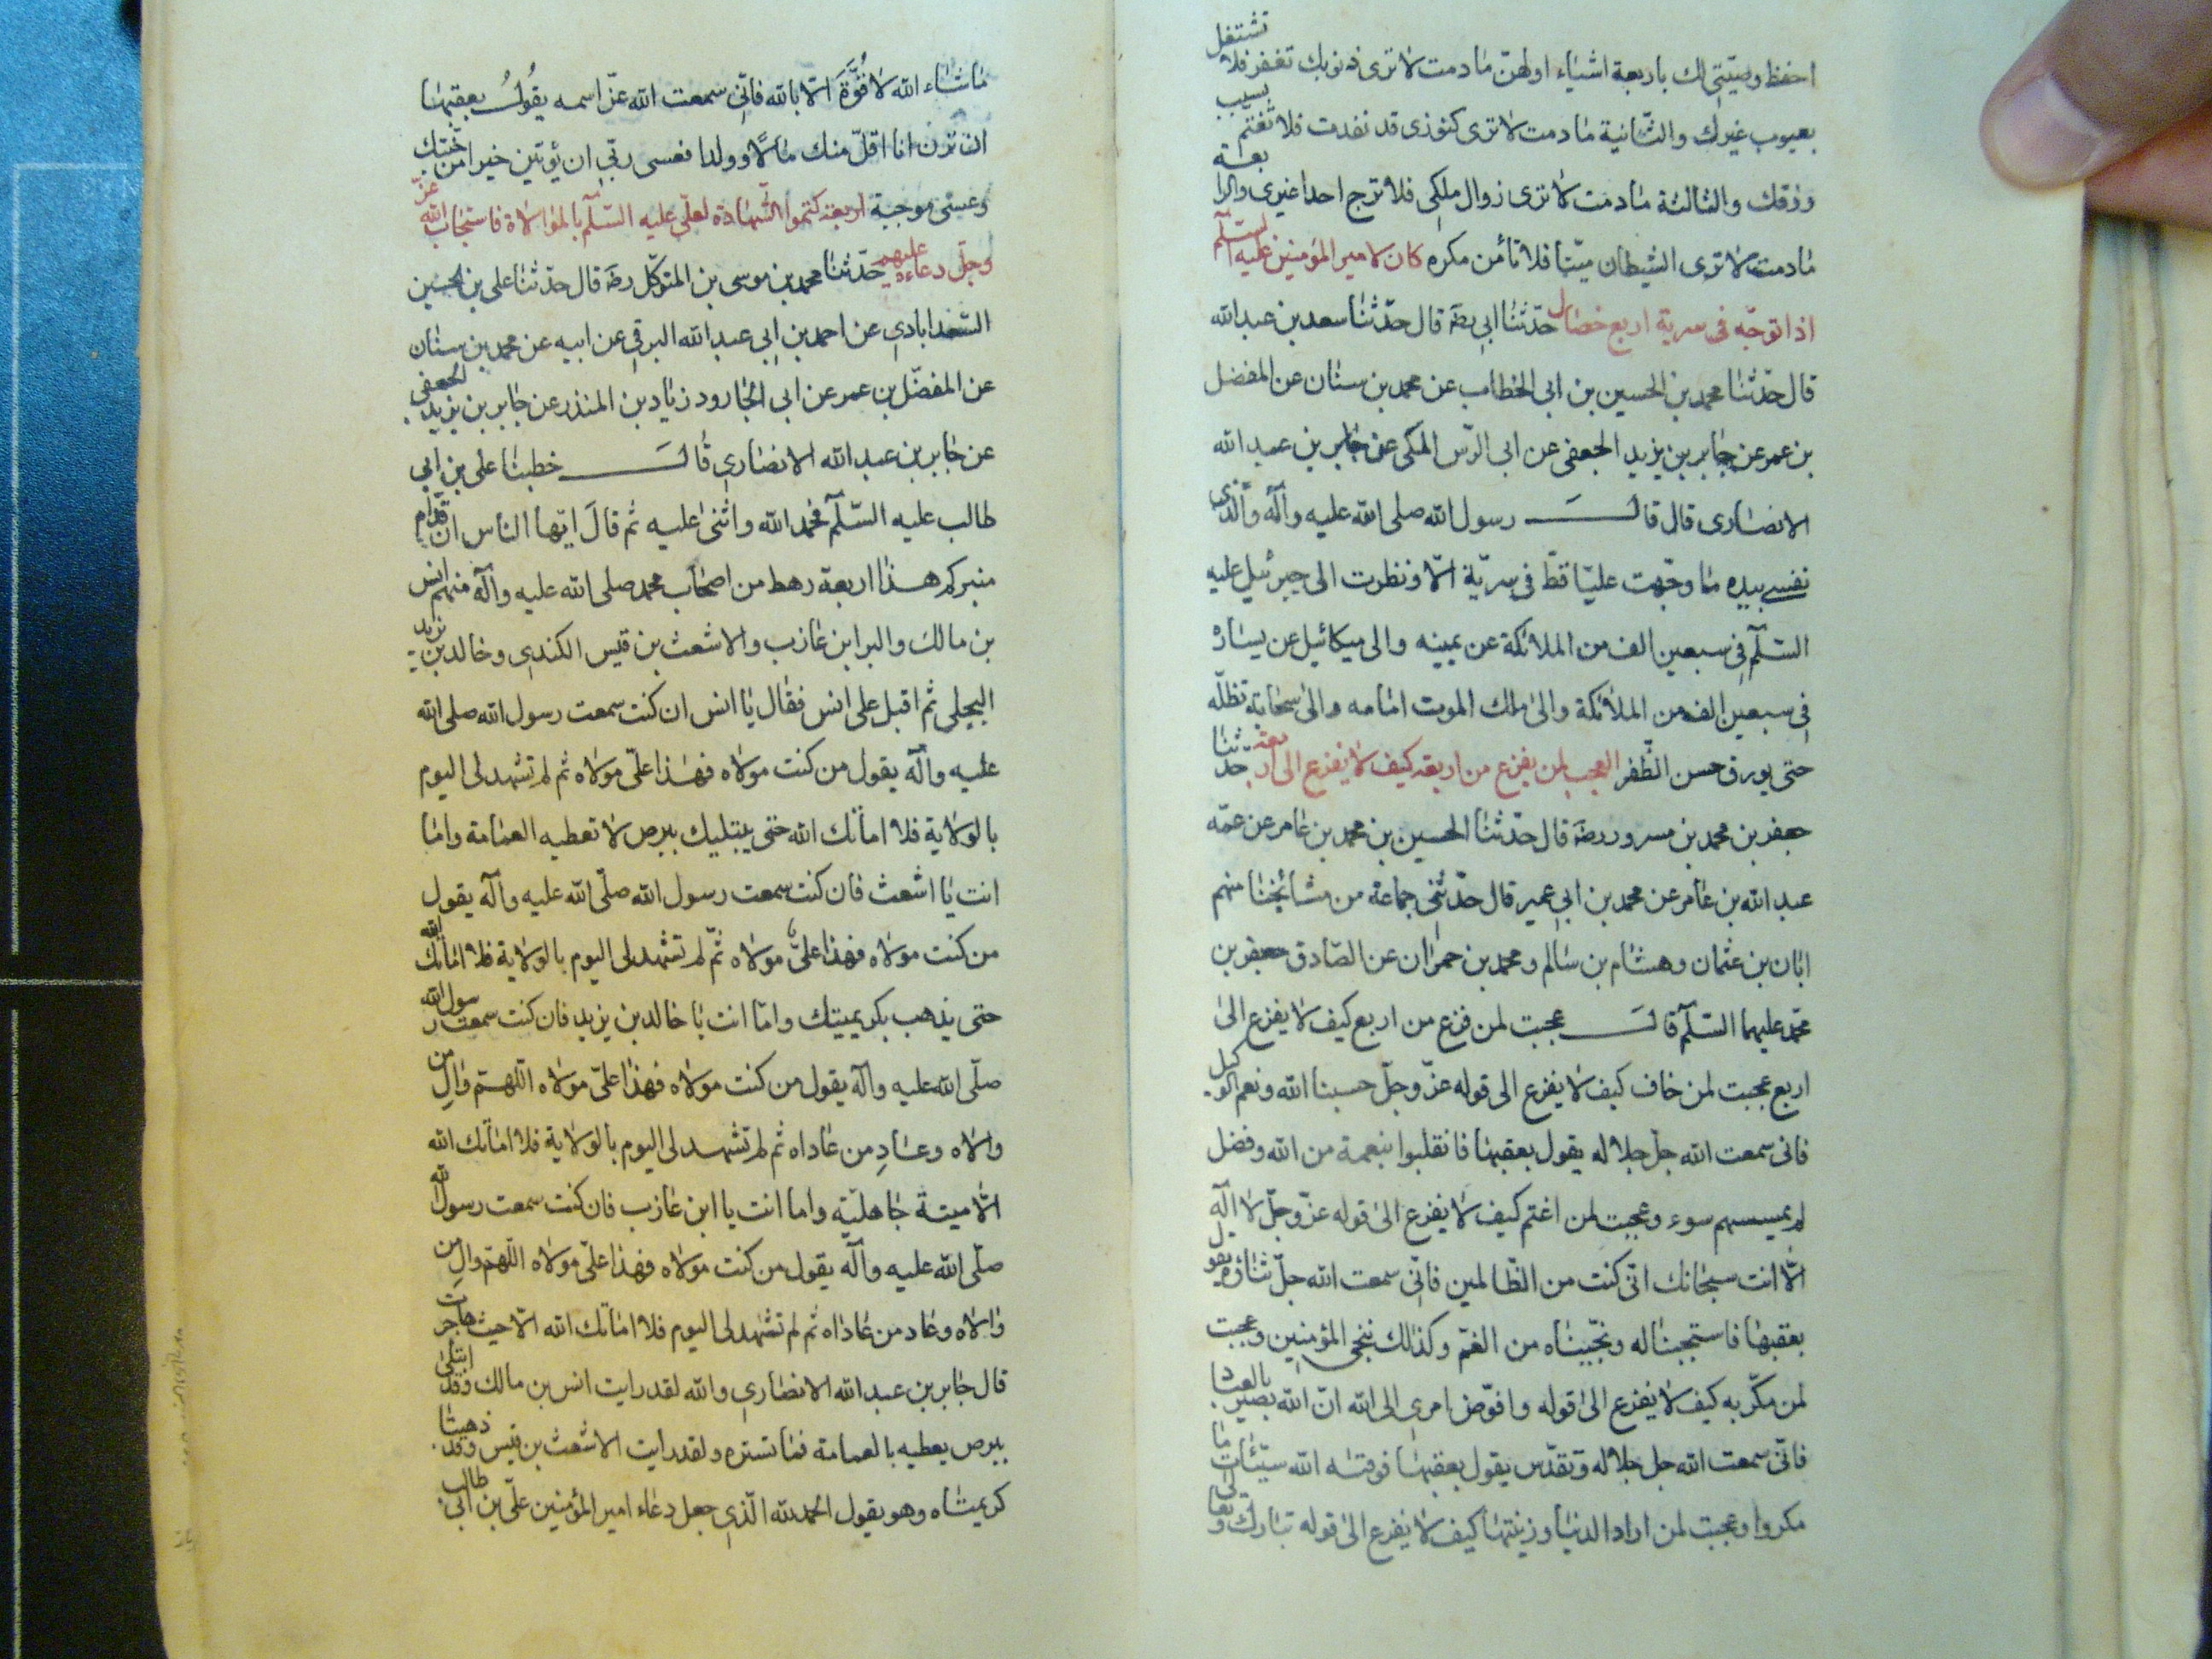 احفظ وصيّتى لك باربعة اشياء اولهنّ ما دمت لا ترى ذنوبك تغفر فلا تشتغل
بعيوب غيرك والثّانية ما دمت لا ترى كنوزى قد نفدت فلا تغتم بسبب
رزقك والثالثة ما دمت لا ترى زوال ملكى فلا ترج احدا غيرى والرابعة
ما دمت لا ترى الشّيطان ميّتا فلا تأمن مكره كان لامير المؤمنين عليه السّلم
اذا توجّه فى سرية اربع خصال حدّثنا ابى رضه قال حدّثنا سعد بن عبد الله
قال حدّثنا محمد بن الحسين بن ابى الخطاب عن محمد بن سنان عن المفضل
بن عمر عن جابر بن يزيد الجعفى عن ابى الزّبير المكى عن جابر بن عبد الله
الانصارى قال قال رسول الله صلى الله عليه وآله والّذى
نفسى بيده ما وجّهت عليّا قطّ فى سريّة الّا ونظرت الى جبرئيل عليه
السّلم فى سبعين الف من الملائكة عن يمينه والى ميكائيل عن يساره
فى سبعين الف من الملائكة والى ملك الموت امامه والى سحابة تظلّه
حتى يورق حسن الظّفر العجب لمن يفزع من اربعة كيف لا يفزع الى اربعة حدّثنا
جعفر بن محمد بن مسرور رضه قال حدّثنا الحسين بن محمد بن عامر عن عمّه
عبد الله بن عامر عن محمد بن ابى عمير قال حدّثنى جماعة من مشائخنا منهم
ابان بن عثمان وهشام بن سالم ومحمد بن حمران عن الصّادق جعفر بن
محمّد عليهما السّلم قال عجبت لمن فزع من اربع كيف لا يفزع الى
اربع عجبت لمن خاف كيف لا يفزع الى قوله عزّ وجلّ حسبنا الله ونعم الوكيل
فانى سمعت الله جلّ جلاله يقول بعقبها فانقلبوا بنعمة من الله وفضل
لم يمسسهم سوء وعجبت لمن اغتم كيف لا يفزع الى قوله عزّ وجلّ لا اله
الّا انت سبحانك انّى كنت من الظّالمين فانّى سمعت الله جلّ ثناؤه يقول
بعقبها فاستجبنا له ونجّيناه من الغمّ وكذلك ننجى المؤمنين وعجبت
لمن مكّر به كيف لا يفزع الى قوله وافوّض امرى الى الله انّ الله بصير بالعباد
فانّى سمعت الله جل جلاله وتقدّس يقول بعقبها فوقته الله سيّئات ما
مكروا وعجبت لمن اراد الدنيا وزينتها كيف لا يفزع الى قوله تبارك وتعالى
ما شاء الله لا قُوَّةَ الّا بالله فانّى سمعت الله عزّ اسمه يقولُ بعقبها
ان ترن انا اقلّ منك مالًا وولدا فعسى ربّى ان يؤتين خيرا من جنّتك
وعسى موجبة اربعة كتموا الشّهادة لعلى عليه السّلم بالموالاة فاستجاب الله عزّ
وجلّ دعاءه عليهم حدّثنا محمد بن موسى بن المتوكّل رضه قال حدّثنا على بن الحسين
السّعدابادى عن احمد بن ابى عبد الله البرقى عن ابيه عن محمد بن سنان
عن المفضّل بن عمر عن ابى الجارود زياد بن المنذر عن جابر بن يزيد الجعفى
عن جابر بن عبد الله الانصارى قال خطبنا على بن ابى
طالب عليه السّلم فحمد الله واثنى عليه ثم قالَ ايّها الناس ان قدّام
منبركم هذا اربعة رهط من اصحاب محمد صلى الله عليه وآله منهم انس
بن مالك والبرا ابن عازب والاشعث بن قيس الكندى وخالد بن يزيد
البجلى ثم اقبل على انس فقال يا انس ان كنت سمعت رسول الله صلى الله
عليه وآله يقول من كنت مولاه فهذا علىّ مولاه ثم لم تشهد لى اليوم
بالولاية فلا اماتك الله حتى يبتليك ببرص لا تغطيه العمامة واما
انت يا اشعث فان كنت سمعت رسول الله صلّى الله عليه وآله يقول
من كنت مولاه فهذا علىّ مولاه ثمّ لم تشهد لى اليوم بالولاية فلا اماتك الله
حتى يذهب بكريمتيك واما انت يا خالد بن يزيد فان كنت سمعت رسول الله
صلّى الله عليه وآله يقول من كنت مولاه فهذا علىّ مولاه اللهم والِ من
والاه وعادِ من عاداه ثم لم تشهد لى اليوم بالولاية فلا اماتك الله
الّا ميتة جاهليّة واما انت يا ابن عازب فان كنت سمعت رسول الله
صلّى الله عليه وآله يقول من كنت مولاه فهذا علىّ مولاه اللّهم والِ من
والاه وعاد من عاداه ثم لم تشهد لى اليوم فلا اماتك الله الّا حيث هاجرت
قال جابر بن عبد الله الانصارى والله لقد رايت انس بن مالك وقد ابتلى
ببرص يغطيه بالعمامة فما تستره ولقد رايت الاشعث بن قيس وقد ذهبتا
كريمتاه وهو يقول الحمد لله الّذى جعل دعاء امير المؤمنين علىّ بن ابى طالب